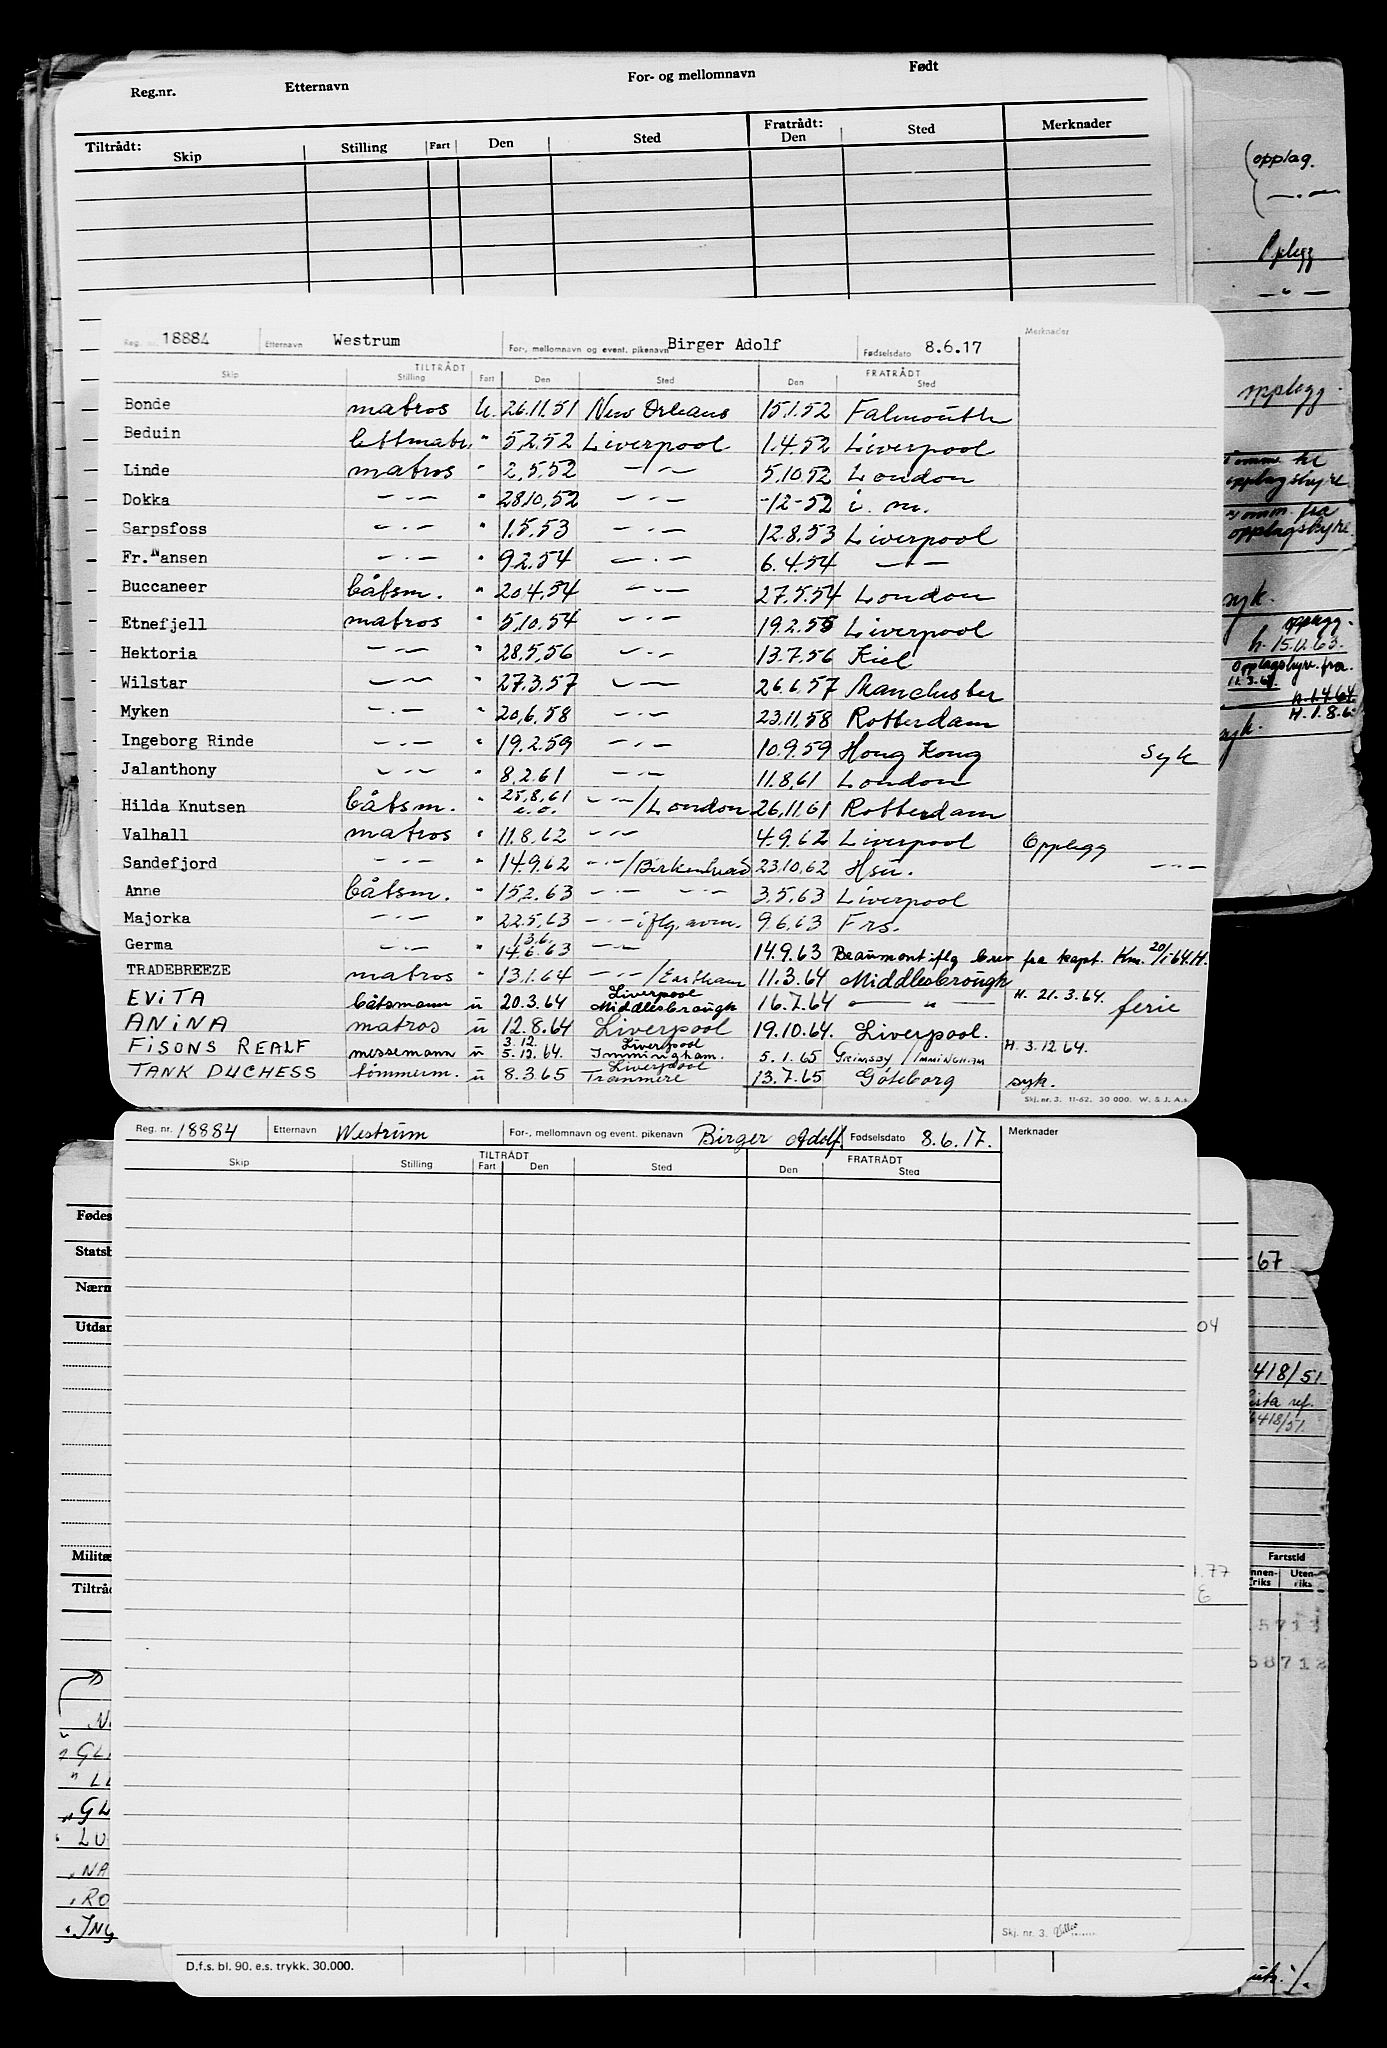 Reg.nr. Etternavn For- og mellomnavn Født
Tiltrådt: Skip Stilling Fart Den Sted Fratrådt: Den Sted Merknader
opplag.
— . —
Oplegg
— " —
opplegg
opplagshyre
omm. fra
opplagshyre
syk.
opplegg.
h. 15.12.63.
Opplagshyre fra
11.3.64
H.1.4.64
H.1.8.6
syk.
Reg. nr. 18884 Etternavn Westrum For-, mellomnavn og event. pikenavn Birger Adolf Fødselsdato 8.6.17 Merknader
TILTRÅDT FRATRÅDT
Skip Stilling Fart Den Sted Den Sted
Bonde matros u. 26.11.51 New Orleans 15.1.52 Falmouth
Beduin lettmatr. " 5.2.52 Liverpool 1.4.52 Liverpool
Linde matros " 2.5.52 — " — 5.10.52 London
Dokka — " — " 28.10.52 — " — -12-52 i. m.
Sarpsfoss — " — " 1.5.53 — " — 12.8.53 Liverpool
Fr. Nansen — " — " 9.2.54 — " — 6.4.54 — " —
Buccaneer båtsm. " 20.4.54 — " — 27.5.54 London
Etnefjell matros " 5.10.54 — " — 19.2.55 Liverpool
Hektoria — " — " 28.5.56 — " — 13.7.56 Kiel
Wilstar — " — " 27.3.57 — " — 26.6.57 Manchester
Myken — " — " 20.6.58 — " — 23.11.58 Rotterdam
Ingeborg Rinde — " — " 19.2.59 — " — 10.9.59 Hong Kong Syk
Jalanthony — " — " 8.2.61 — " — 11.8.61 London
Hilda Knutsen båtsm. " 25.8.61 e.o. — " — / London 26.11.61 Rotterdam
Valhall matros " 11.8.62 — " — 4.9.62 Liverpool Opplegg
Sandefjord — " — " 14.9.62 — " — / Birkenhead 23.10.62 Hsu. — " —
Anne båtsm. " 15.2.63 — " — — " — 3.5.63 Liverpool
Majorka — " — " 22.5.63 — " — iflg. avm. 9.6.63 Frs.
Germa — " — " 13.6. 14.6.63 — " — 14.9.63 Beaumont iflg brev fra kapt. Km. 20/1 64. H.
TRADEBREEZE matros " 13.1.64 — " — / Eastham 11.3.64 Middlesbrough
EViTA båtsmann u 20.3.64 Liverpool Middlesbrough 16.7.64 — " — H. 21.3.64. ferie
ANiNA matros u 12.8.64 Liverpool 19.10.64. Liverpool.
FiSONS REALF messemann u 3.12. 5.12.64. Liverpool Immingham. 5.1.65 GRIMSBY / IMMINGHAM H. 3.12.64.
TANK DUCHESS tömmerm. u 8.3.65 Liverpool Tranmere 13.7.65 Göteborg syk.
Skj. nr. 3. 11-62. 30 000. W. & J. A.s.
Reg. nr. 18884 Etternavn Westrum For-, mellomnavn og event. pikenavn Birger Adolf. Fødselsdato 8.6.17. Merknader
TILTRÅDT FRATRÅDT
Skip Stilling Fart Den Sted Den Sted
Skj. nr. 3.
Fødes
Statsb
Nærm
Utdan
Militæ
Tiltråd
N
GL
" LL
" GL
LU
NA
RO
ING
67
04
418/51
ref.
418/51.
Fartstid
nnen-riks Uten-riks
.77
E
5713
58712
D.f.s. bl. 90. e.s. trykk. 30.000.